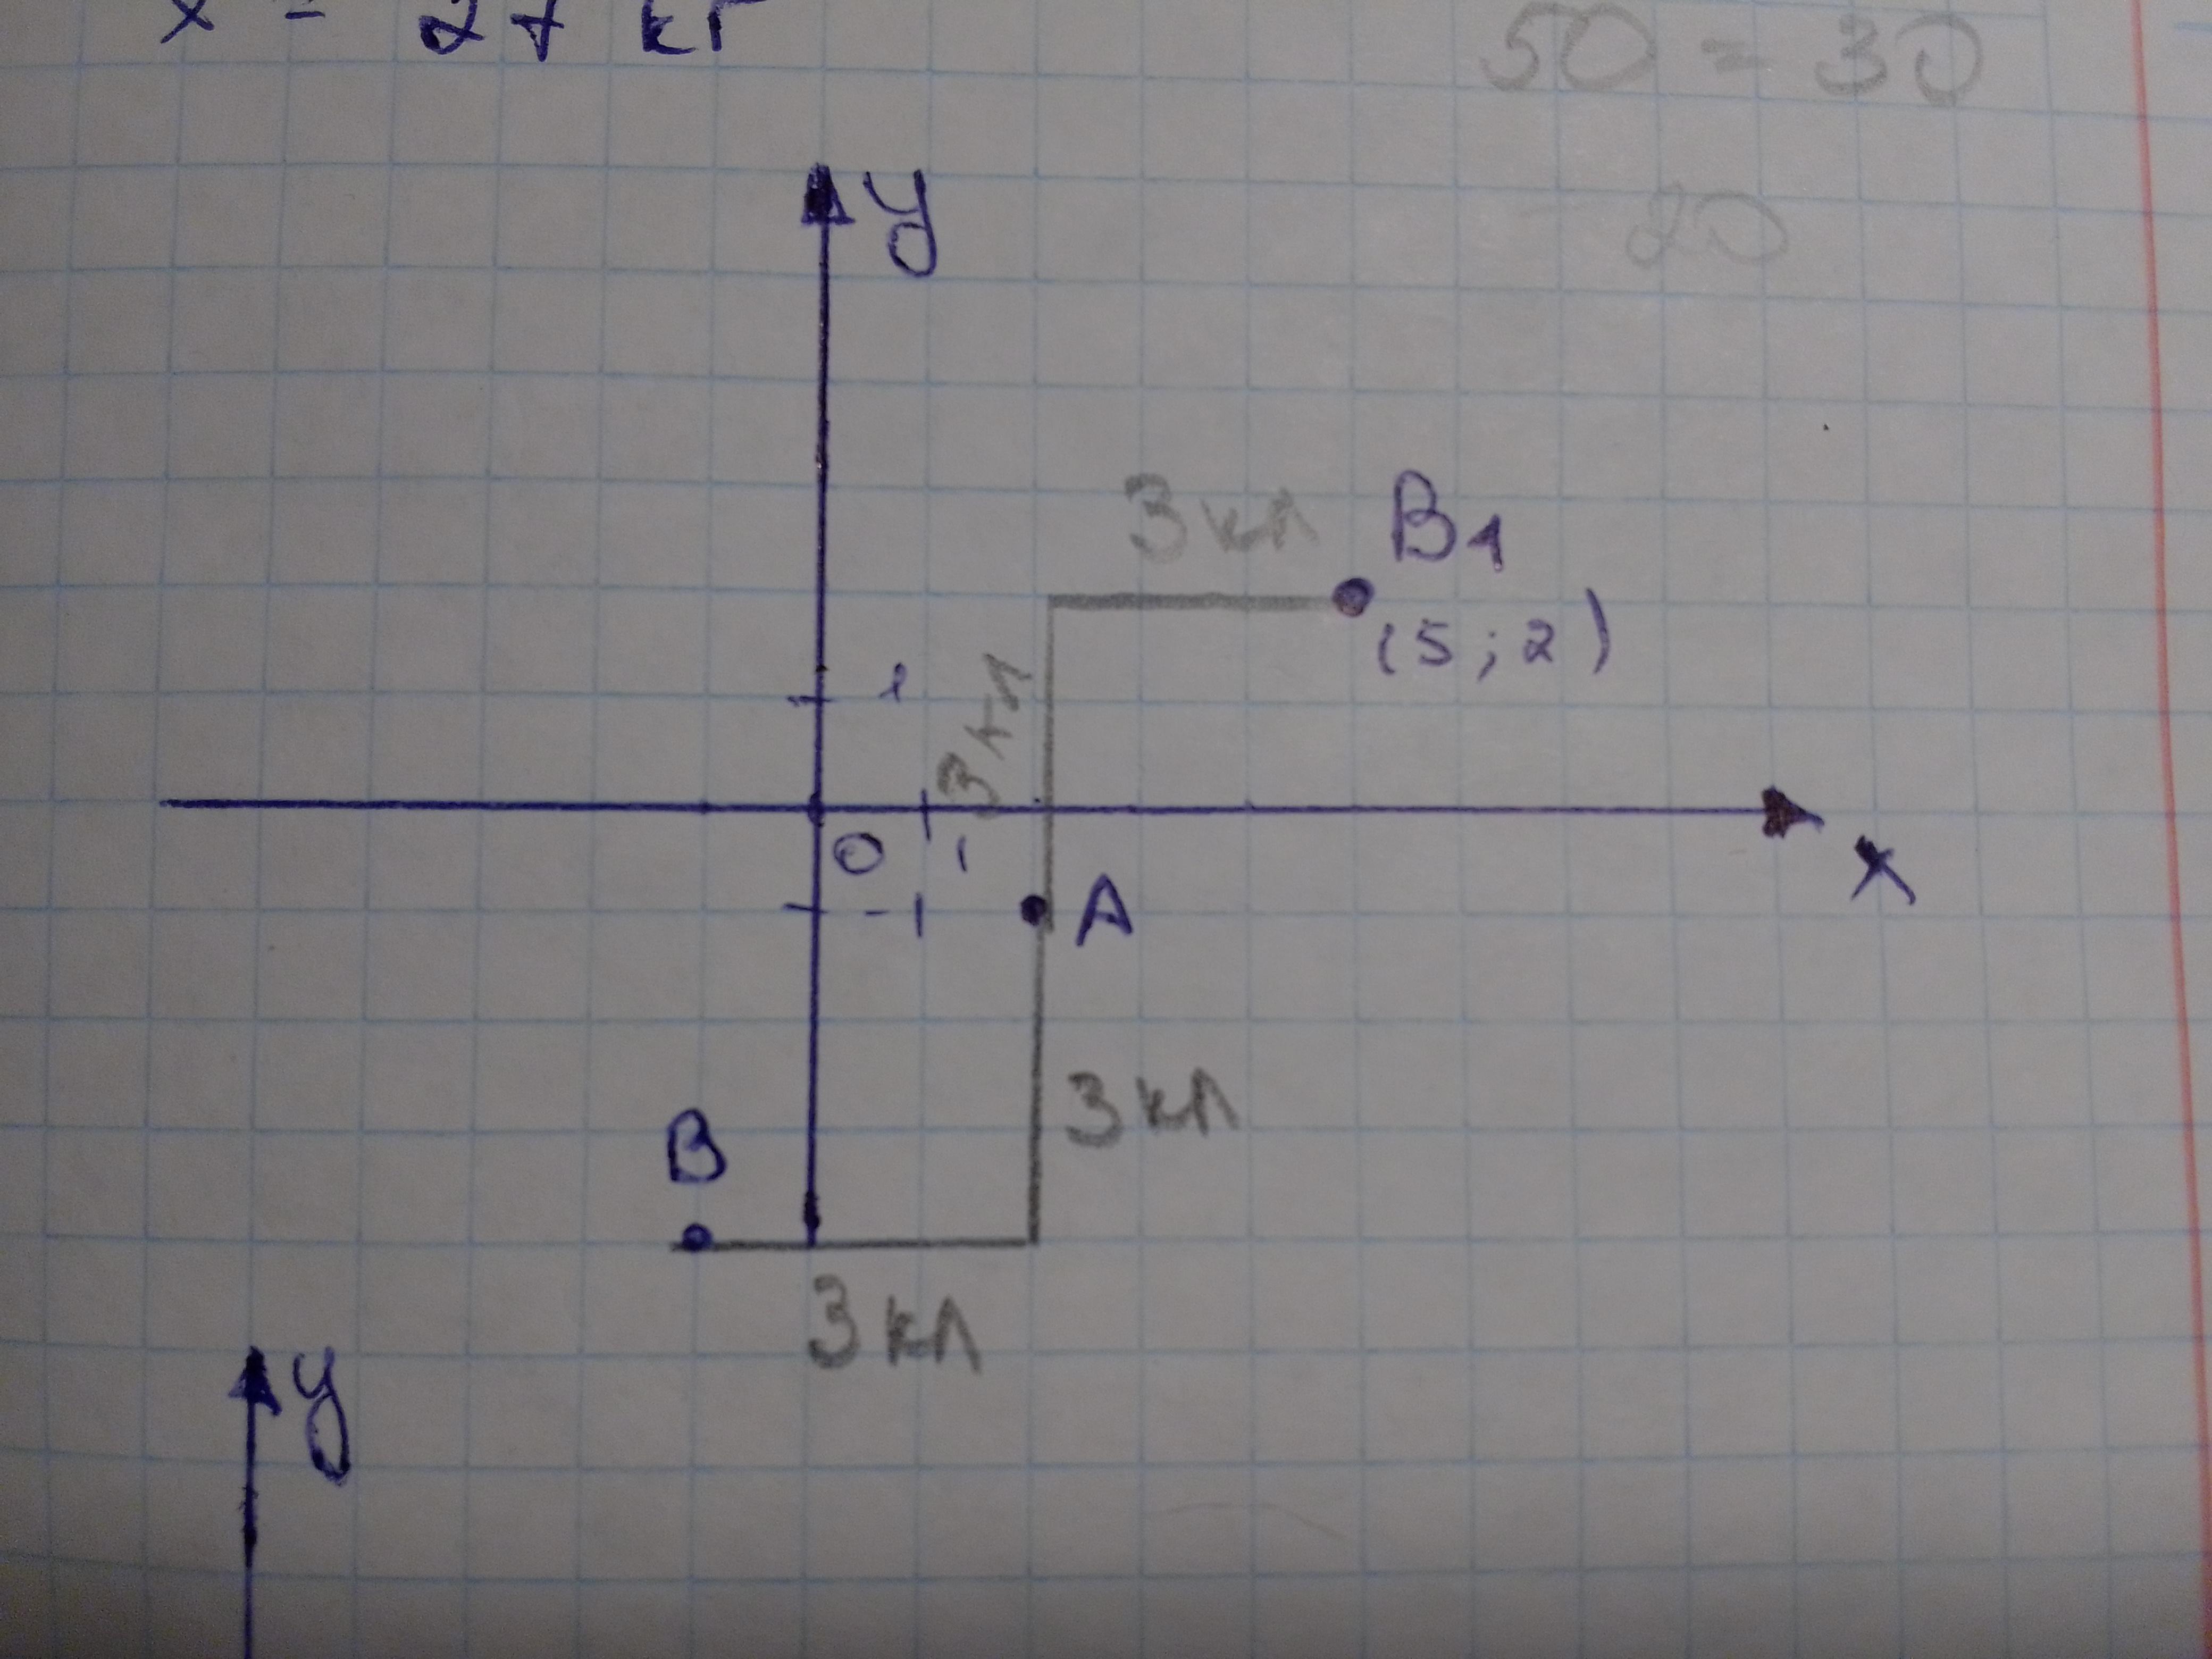 x = 27 кг
50 = 30
20
y
3 кл
B1
(5; 2)
1
3 кл
0 1
x
-1
A
3 кл
B
3 кл
y